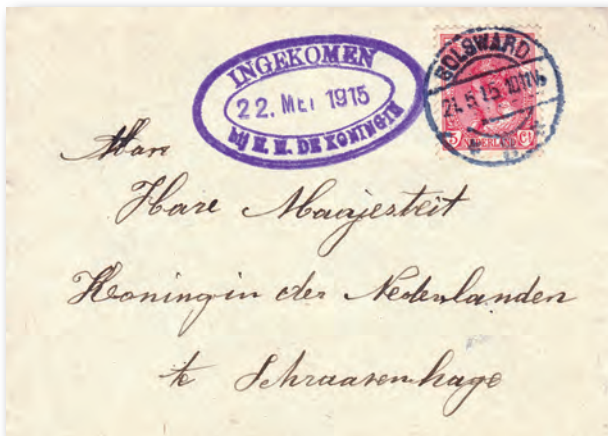 INGEKOMEN
22. MEI 1915
bij H. M. DE KONINGIN
BOLSWARD
21.5.15.
5 NEDERLAND Ct
Aan
Hare Maajesteit
Koningin der Nederlanden
te Schraavenhage